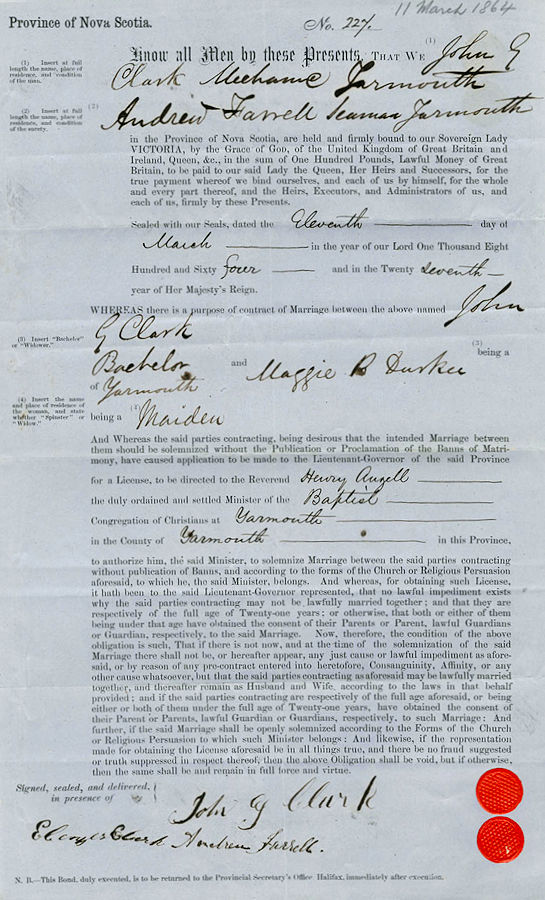 11 March 1864
Province of Nova Scotia.
No. 227.
Know all Men by these Presents, THAT WE (1) John G
(1) Insert at full length the name, place of residence, and condition of the man.
Clark Mechanic Yarmouth
(2) Insert at full length the name, place of residence, and condition of the surety.
(2) Andrew Farrell Seaman Yarmouth
in the Province of Nova Scotia, are held and firmly bound to our Sovereign Lady
VICTORIA, by the Grace of GOD, of the United Kingdom of Great Britain and
Ireland, Queen, &c., in the sum of One Hundred Pounds, Lawful Money of Great
Britain, to be paid to our said Lady the Queen, Her Heirs and Successors, for the
true payment whereof we bind ourselves, and each of us by himself, for the whole
and every part thereof, and the Heirs, Executors, and Administrators of us, and
each of us, firmly by these Presents.
Sealed with our Seals, dated the Eleventh day of
March in the year of our Lord One Thousand Eight
Hundred and Sixty four and in the Twenty Seventh
year of Her Majesty's Reign.
WHEREAS there is a purpose of contract of Marriage between the above named John
G Clark
(3) Insert "Bachelor" or "Widower."
(3) being a
Bachelor and Maggie B Durkee
of Yarmouth
(4) Insert the name and place of residence of the woman, and state whether "Spinster" or "Widow."
being a (4) Maiden
And Whereas the said parties contracting, being desirous that the intended Marriage between
them should be solemnized without the Publication or Proclamation of the Banns of Matri-
mony, have caused application to be made to the Lieutenant-Governor of the said Province
for a License, to be directed to the Reverend Henry Angell
the duly ordained and settled Minister of the Baptist
Congregation of Christians at Yarmouth
in the County of Yarmouth in this Province,
to authorize him, the said Minister, to solemnize Marriage between the said parties contracting
without publication of Banns, and according to the forms of the Church or Religious Persuasion
aforesaid, to which he, the said Minister, belongs. And whereas, for obtaining such License,
it hath been to the said Lieutenant-Governor represented, that no lawful impediment exists
why the said parties contracting may not be lawfully married together; and that they are
respectively of the full age of Twenty-one years; or otherwise, that both or either of them
being under that age have obtained the consent of their Parents or Parent, lawful Guardians
or Guardian, respectively, to the said Marriage. Now, therefore, the condition of the above
obligation is such, That if there is not now, and at the time of the solemnization of the said
Marriage there shall not be, or hereafter appear, any just cause or lawful impediment as afore-
said, or by reason of any pre-contract entered into heretofore, Consanguinity, Affinity, or any
other cause whatsoever, but that the said parties contracting as aforesaid may be lawfully married
together, and thereafter remain as Husband and Wife, according to the laws in that behalf
provided; and if the said parties contracting are respectively of the full age aforesaid, or being
either or both of them under the full age of Twenty-one years, have obtained the consent of
their Parent or Parents, lawful Guardian or Guardians, respectively, to such Marriage: And
further, if the said Marriage shall be openly solemnized according to the Forms of the Church
or Religious Persuasion to which such Minister belongs: And likewise, if the representation
made for obtaining the License aforesaid be in all things true, and there be no fraud suggested
or truth suppressed in respect thereof, then the above Obligation shall be void, but if otherwise,
then the same shall be and remain in full force and virtue.
Signed, sealed, and delivered,
in presence of
John G Clark
Clark Andrew Farrell.
N. B.—This Bond, duly executed, is to be returned to the Provincial Secretary's Office Halifax, immediately after execution.